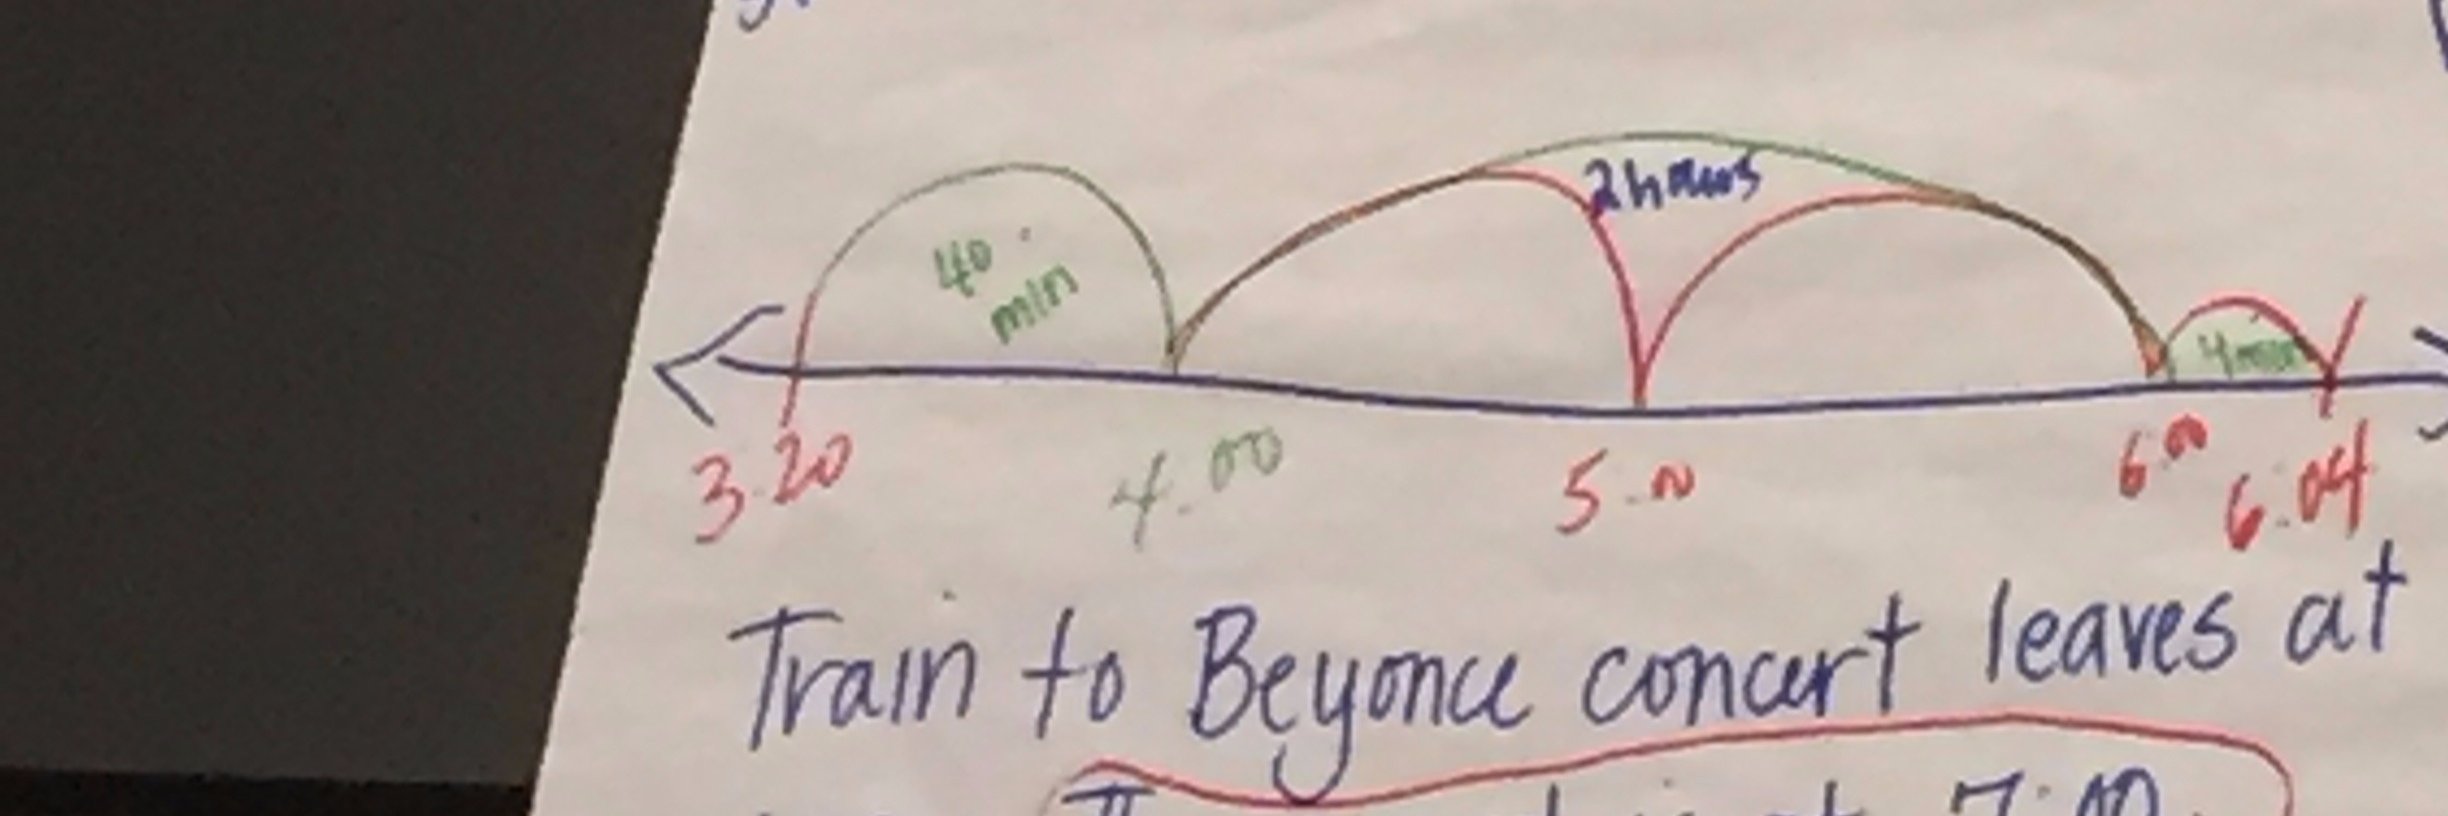 2 hours
40
min
4 min
3.20 4.00 5.00 6.00 6.04
Train to Beyonce concert leaves at
is at 7:00